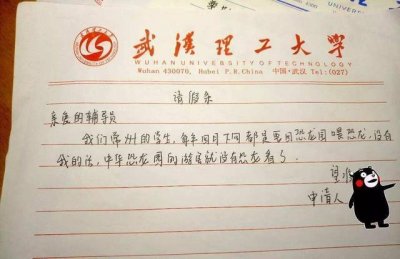 武漢理工大學
WUHAN UNIVERSITY OF TECHNOLOGY
Wuhan 430070, Hubei P.R.China 中国·武汉 Tel:(027)
请假条
亲爱的辅导员
我们常州的学生,每年四月下旬都是要回恐龙园喂恐龙,没有
我的话,中华恐龙园的游客就没有恐龙看了。
望
申请人